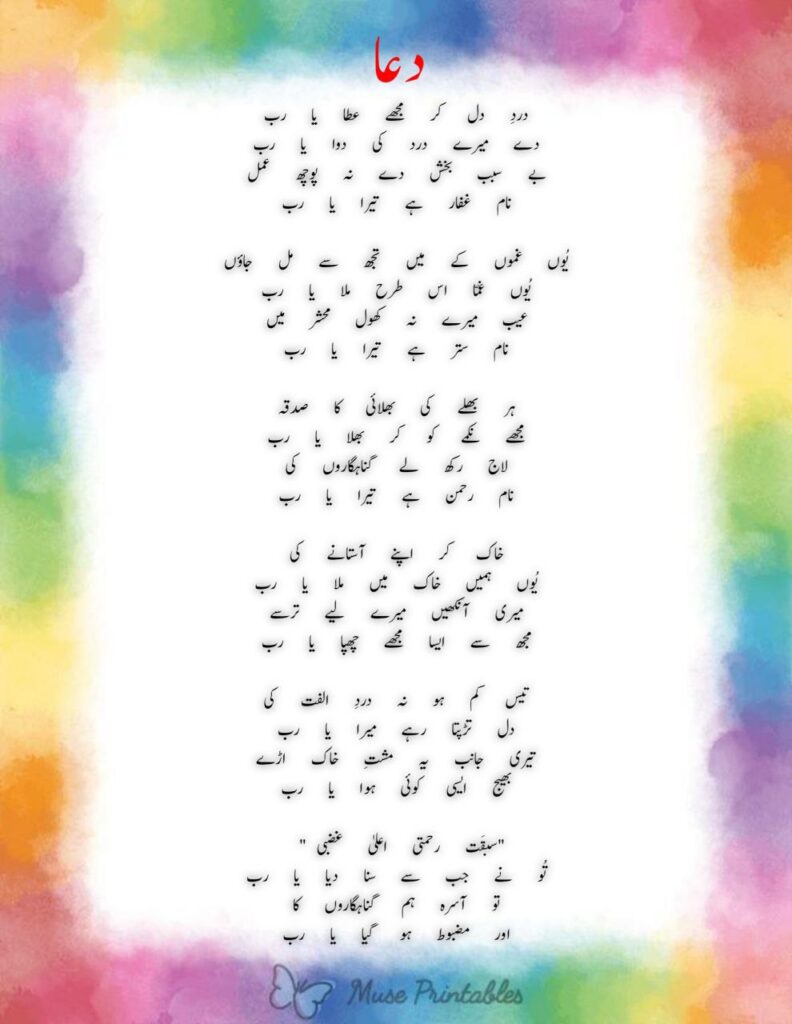 دعا
دردِ دل کر مجھے عطا یا رب
دے میرے درد کی دوا یا رب
بے سبب بخش دے نہ پوچھ عمل
نام غفار ہے تیرا یا رب
یُوں غموں کے میں تجھ سے مل جاؤں
یُوں غما اس طرح ملا یا رب
عیب میرے نہ کھول محشر میں
نام ستر ہے تیرا یا رب
ہر بھلے کی بھلائی کا صدقہ
مجھے نکمے کو کر بھلا یا رب
لاج رکھ لے گناہگاروں کی
نام رحمن ہے تیرا یا رب
خاک کر اپنے آستانے کی
یُوں ہمیں خاک میں ملا یا رب
میری آنکھیں میرے لیے ترسے
مجھ سے ایسا مجھے چھپا یا رب
تیس کم ہو نہ دردِ الفت کی
دل تڑپتا رہے میرا یا رب
تیری جانب یہ مشتِ خاک اڑے
بھیج ایسی کوئی ہوا یا رب
"سبقَت رحمتی اعلیٰ غضبی "
تُو نے جب سے سنا دیا یا رب
تو آسرہ ہم گناہگاروں کا
اور مضبوط ہو گیا یا رب
Muse Printables